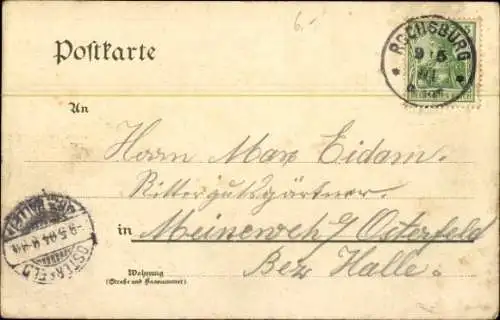 6.-
Postkarte
ROCHSBURG
9 5
An
Herrn Max Eidam.
Rittergutsgärtner.
in Meineweh b/ Osterfeld
Bez Halle.
Wohnung
(Straße und Hausnummer)
OSTERFELD
9.5.04.